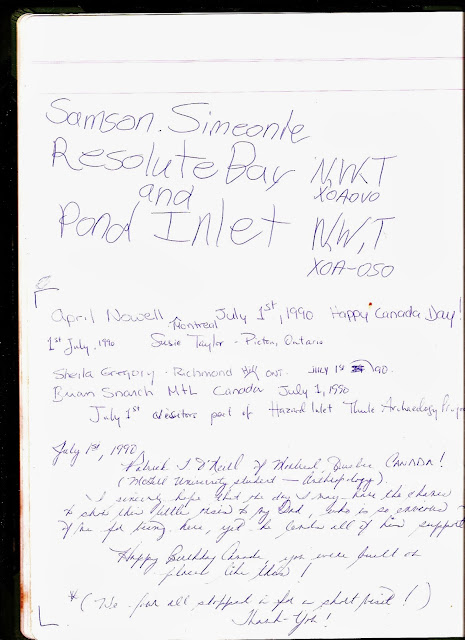 Samson. Simeonie
Resolute Bay N,W,T
and X0A0V0
Pond Inlet N,W,T
X0A-0S0
April Nowell Montreal July 1st, 1990 Happy Canada Day!
1st July. 1990 Susie Taylor - Picton, Ontario
Sheila Gregory - Richmond Hill ONT. July 1st 90.
Brian Mtl Canada July 1, 1990
July 1st visitors part of Hazard Inlet Thule Archaeology
July 1st, 1990
Patrick J O'Neill of Montreal, Quebec CANADA!
(McGill University student — Archaeology).
I sincerely hope that one day I may have the chance
to show this little to my Dad, who is so envious
of me for being here, yet he lends all of his support
Happy Birthday Canada, you were built on
places like this!
*(We four all stopped in for a short visit!)
Thank-You!